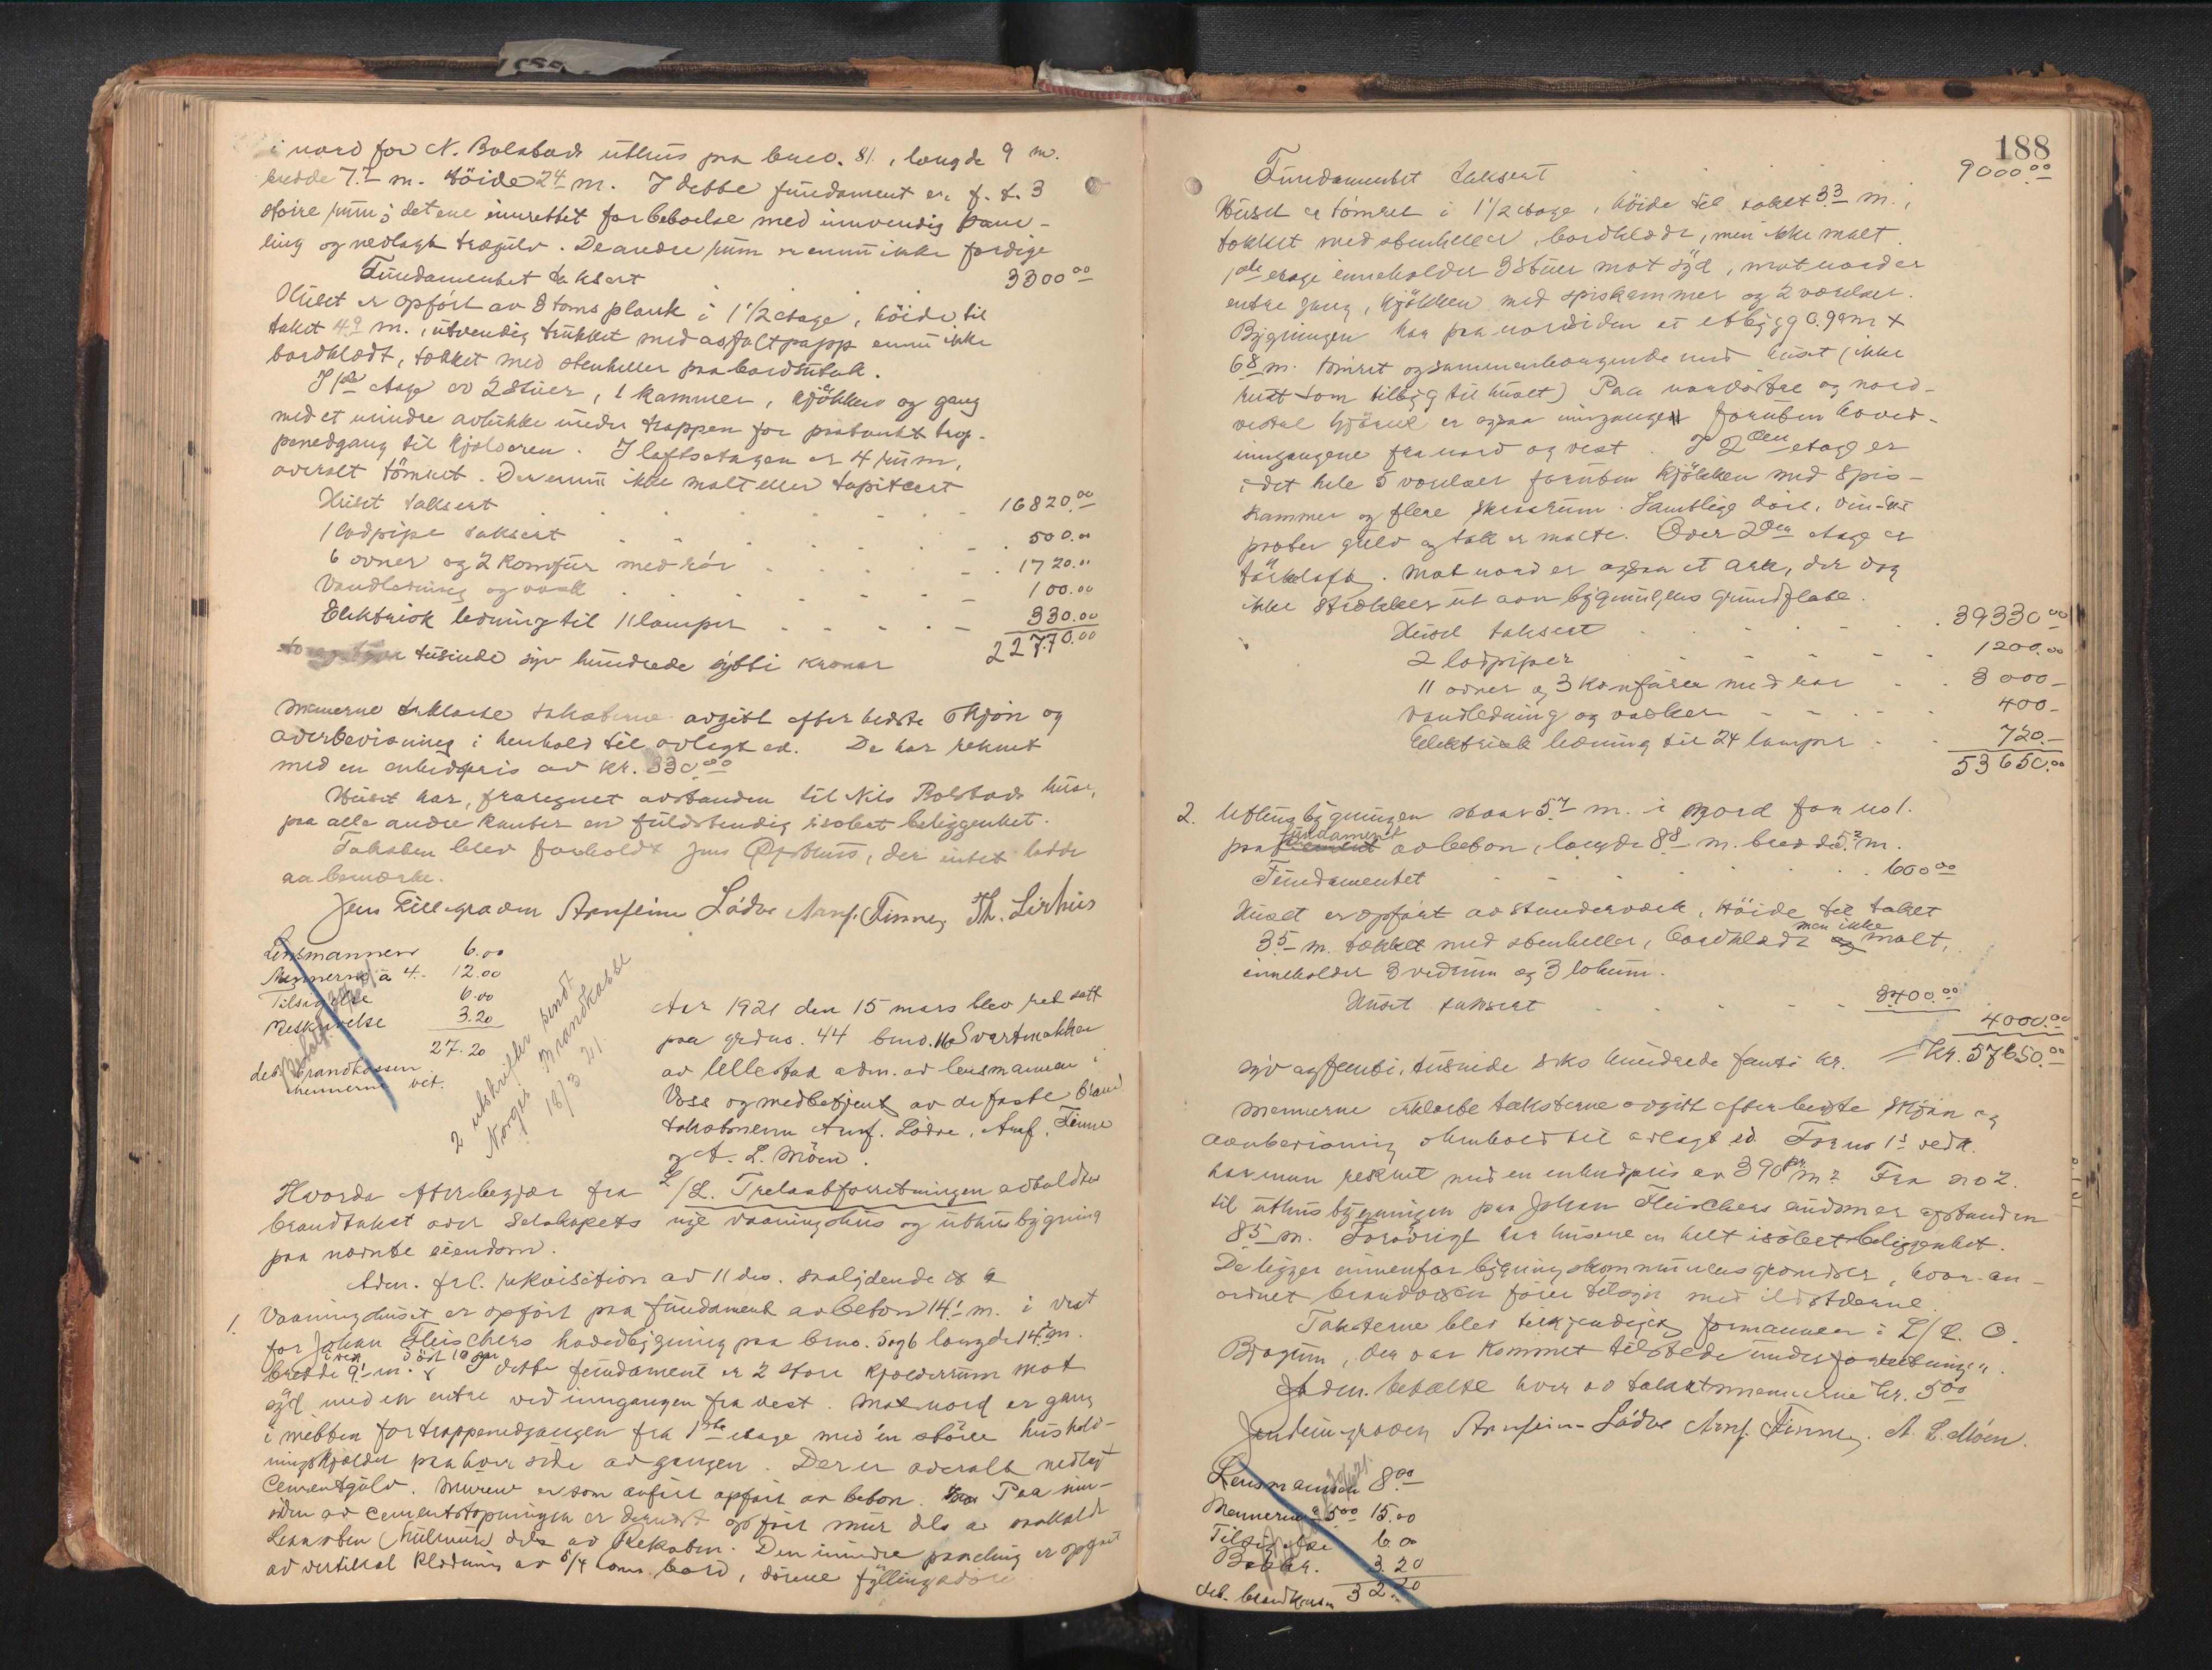 i nord for N. Bolstads uthus paa bno. 81, længde 9 m.
bredde 7.2 m. Høide 2.4 m. I dette fundament er f. t. 3
store rum; det ene innrettet for beboelse med innvendig pane-
ling og nedlagt trægulv. De andre rum er ennu ikke færdige
Fundamentet taksert 3300.00
Huset er opført av 3 toms plank i 1 1/2 etage, høide til
taket 4.9 m., utvendig trukket med asfaltpapp ennu ikke
bordklædt, tækket med stenheller paa bordsutak.
I 1ste etage er 2 stuer, 1 kammer, kjøkken og gang
med et mindre avlukke under trappen for trap-
penedgang til kjelderen. I loftsetagen er 4 rum,
overalt tømret. Der ennu ikke malt eller tapitsert
Huset taksert 16820.00
1 lodpipe taksert 500.00
6 ovner og 2 komfur med rør 1720.00
Vandledning og vask 100.00
Elektrisk ledning til 11 lamper 330.00
22770.00
to og tyve tusinde syv hundrede sytti kroner
Mennerne erklærte taksterne avgitt efter bedste skjøn og
overbevisning i henhold til avlagt ed. De har reknet
med en enhedspris av kr. 330.00
Huset har, fraregnet avstanden til Nils Bolstads hus,
paa alle andre kanter en fuldstendig isolert beliggenhet.
Taksten blev foreholdt Jens, der intet hadde
aa bemærke.
Jens Lillegraven Arnfinn Lødve Arnf. Finne Th. Lirhus
Lensmannen 6.00
Mennerne à 4.- 12.00
Tilsigelse 6.00
Beskrivelse 3.20
27.20
deb. brandkassen
mennerne bet.
2 utskrifter sendt
Norges Brandkasse
18/3 21.
Aar 1921 den 15 mars blev ret satt
paa grdno. 44 bno. 16 Svartmakken
av Ullestad adm. av lensmannen i
Voss og medbetjent av de faste brand
takstmenn Arnf. Lødve, Arnf. Finne
og A. L. Møen.
Hvorda efter begjær fra L/L. Trelastforretningen avholdtes
brandtakst over selskapets nye vaaningshus og uthusbygning
paa nævnte eiendom.
Adm. frl. rekvisition av 11 ds. saalydende
1. Vaaningshuset er opført paa fundament av beton 14.1 m. i vest
for Johan Fleischers hovedbygning paa bno. 5 og 6 længde 14.5 m.
i vest i øst 10 m
bredde 9.1 m. I dette fundament er 2 store kjælderrum mot
syd med en entre ved inngangen fra vest. Mot nord er gang
i midten for trappenedgangen fra 1ste etage med en større hushold-
ningskjælder paa hver side av gangen. Der er overalt nedlagt
cementgulv. Muren er som anført opført av beton. Paa inn-
siden av cementstøpningen er dernest opført mur dels av saakaldt
Lean sten (hulmur) dels av. Den inndre paneling er opført
av vertikal klædning av 5/4 toms bord, dørene fyllingsdøre
188
Fundamentet taksert 9000.00
Huset er tømret i 1 1/2 etage, høide til taket 3.3 m.,
tækket med stenheller, bordklædt, men ikke malt.
1ste etage inneholder 3 stuer mot syd, mot nord er
entre gang, kjøkken med spiskammer og 2 værelser.
Bygningen har paa nordsiden et utbygg 0.90 m x
6.8 m. tømret og sammenhængende med huset (ikke
som tilbyg til huset) Paa nordøstre og nord-
vestre hjørne er ogsaa innganger foruten hoved-
inngangene fra nord og vest. I 2den etage er
i det hele 5 værelser foruten kjøkken med spis-
kammer og flere skaprum. Samtlige døre, vin-
 gulv og tak er malte. Over 2den etage er
tørkeloft. Mot nord er ogsaa et ark, der dog
ikke strækker ut over bygningens grundflate.
Huset taksert 39330.00
2 lodpiper 1200.00
11 ovner og 3 komfurer med rør 3000-
Vandledning og vasker 400-
Elektrisk ledning til 24 lamper 720.-
53650.00
2. Uthusbygningen staar 5.7 m. i nord for no 1.
fundament
paa av beton, længde 8.8 m. bredde 5.2 m.
Fundamentet 600.00
Huset er opført av stenderverk, høide til taket
men ikke
3.5 m. tækket med stenheller, bordklædt og malt,
inneholder 3 vedrum og 3 lokum.
Huset taksert 3400.00
4000.00
Kr. 57650.00
syv og femti, tusinde seks hundrede femti kr.
Mennerne erklærte taksterne avgitt efter bedste skjøn og
overbevisning i henhold til avlagt ed. For no 1's vedk.
har man reknet med en enhedspris av 390 pr m2 Fra no 2.
til uthusbygningen paa Johan Fleischers eiendom er avstanden
8.5 m. Forøvrigt har husene en helt isolert beliggenhet.
De ligger innenfor bygningskommunens grændser, hvor an-
ordnet brandvæsen fører tilsyn med ildstederne.
Taksterne blev tilkjendegit formannen i L/L. O.
Bjørgum, der var kommet tilstede under forretningen.
Adm. betalte hver av takstmennerne kr. 5.00
Jens Lillegraven Arnfinn Lødve Arnf. Finne. A. L. Møen.
Lensmannen 8.00
Mennerne à 5.00 15.00
Tilsigelse 6.00
Beskr. 3.20
deb. brandkassen 32.20